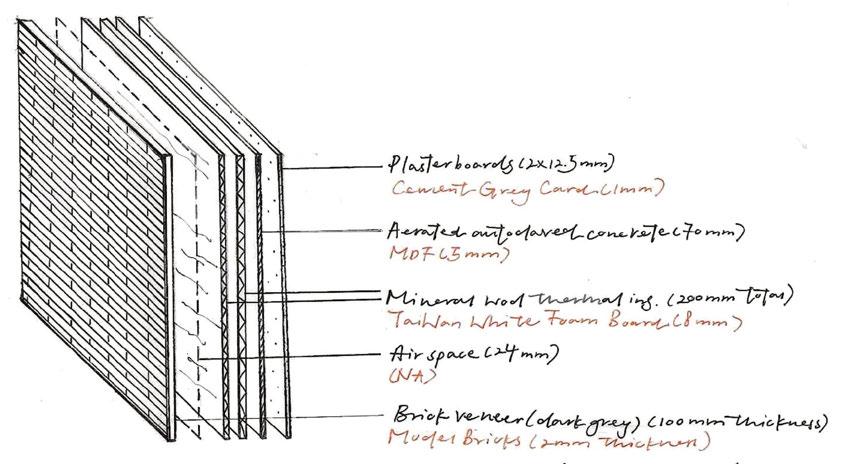 Plasterboards (2x12.5mm)
Cement Grey Card (1mm)
Aerated autoclaved concrete (70mm)
MDF (5mm)
Mineral wool thermal ins. (200mm total)
Taiwan White Foam Board (8mm)
Air space (24mm)
(NA)
Brick veneer (dark grey) (100mm thickness)
Model Bricks (2mm thickness)